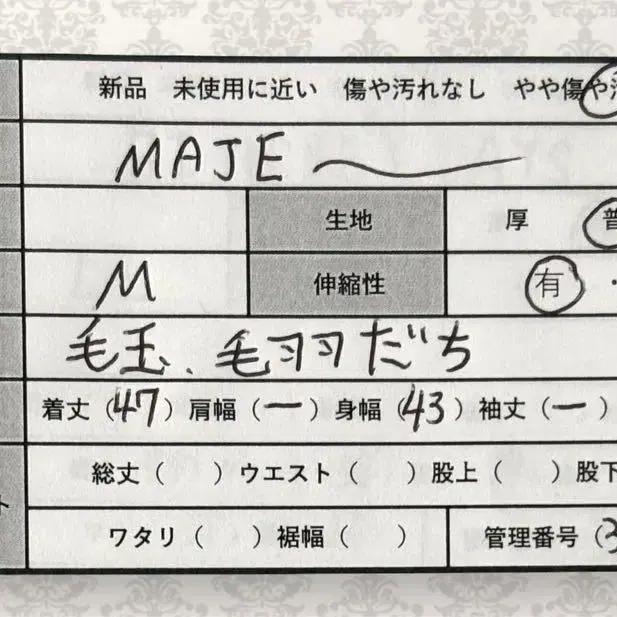 新品 未使用に近い 傷や汚れなし やや傷や
MAJE
生地 厚 普
M 伸縮性 有・
毛玉、毛羽だち
着丈（47）肩幅（ー）身幅（43）袖丈（ー）
総丈（ ）ウエスト（ ）股上（ ）股下
ト
ワタリ（ ）裾幅（ ） 管理番号（3